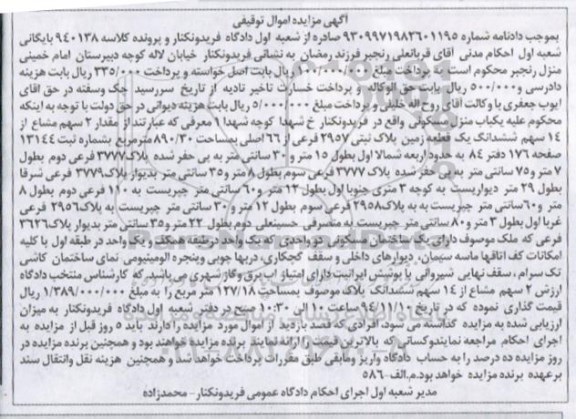 آگهی مزایده اموال توقیفی
بموجب دادنامه شماره ۹۳۰۹۹۷۱۹۸۳۶۰۱۱۹۵ صادره از شعبه اول دادگاه فریدونکنار و پرونده کلاسه ۹۴۰۱۳۸ بایگانی
شعبه اول احکام مدنی آقای قربانعلی رنجبر فرزند رمضان به نشانی فریدونکنار خیابان لاله کوچه دبیرستان امام خمینی
منزل رنجبر محکوم است به پرداخت مبلغ ریال بابت اصل خواسته و پرداخت ۳۳۵/۰۰۰ ریال بابت هزینه
دادرسی و ۵۰۰/۰۰۰ ریال بابت حق الوکاله و پرداخت خسارت تاخیر تادیه از تاریخ سررسید چک وسفته در حق آقای
ایوب جعفری با وکالت آقای روح اله خلیلی و پرداخت مبلغ ۵/۰۰۰/۰۰۰ ریال بابت هزینه دیوانی در حق دولت با توجه به اینکه
محکوم علیه یکباب منزل مسکونی واقع در فریدونکنار خ شهدا کوچه شهدا ۱ معرفی که عبارتند از مقدار ۲ سهم مشاع از
۱۴ سهم ششدانگ یک قطعه زمین پلاک ثبتی ۲۹۵۷ فرعی از ۶۶ اصلی بمساحت ۸۹۰/۳۰ مترمربع بشماره ثبت ۱۳۱۴۴
صفحه ۱۷۶ دفتر ۸۴ به حدود اربعه شمالا اول بطول ۱۵ متر و ۳۰ سانتی متر به پی حفر شده پلاک ۳۷۷۷ فرعی دوم بطول
۷ متر و ۷۵ سانتی متر به پی حفر شده پلاک ۳۷۷۷ فرعی سوم بطول ۸ متر و ۳۵ سانتی متر بدیوار پلاک ۳۷۷۹ فرعی شرقا
بطول ۲۹ متر دیواریست به کوچه ۳ متری جنوبا اول بطول ۱۳ متر و ۶۰ سانتی متر چپریست به ۱۱۰ فرعی دوم بطول ۸
متر و ۶۰ سانتی متر به به پلاک ۲۹۵۸ فرعی سوم بطول ۱۲ متر و ۳۰ سانتی متر چپریست به پلاک ۲۹۵۶ فرعی
غربا اول بطول ۳ متر و ۸۰ سانتی متر چپریست به متصرفی حسینعلی دوم بطول ۲۲ متر و ۳۵ سانتی متر بدیوار پلاک ۳۶۲۶
فرعی که ملک موصوف دارای یک ساختمان مسکونی دو واحدی که یک واحد در طبقه همکف و یک واحد در طبقه اول با کلیه
امکانات کف اتاقها ماسه سیمان، دیوارهای داخلی و سقف گچکاری، دربها چوبی وپنجره الومینیومی نمای ساختمان کاشی
تک سرام، سقف نهایی شیروانی با پوشش ایرانیت دارای امتیاز آب برق و گاز شهری می باشید که کارشناس منتخب دادگاه
ارزشی ۲ سهم مشاع از ۱۴ سهم ششدانگ پلاک موصوف بمساحت ۱۲۷/۱۸ متر مربع را به مبلغ ۱/۳۸۹/۰۰۰/۰۰۰ ریال
قیمت گذاری نموده که در تاریخ ۹۴/۱۱/۱۰ ساعت ۱۰ الی ۱۰:۳۰ صبح در دفتر شعبه اول دادگاه فریدونکنار به میزان
ارزیابی شده به مزایده گذاشته می شود، افرادی که قصد بازدید از اموال مورد مزایده را دارند باید ۵ روز قبل از مزایده به
اجرای احکام مراجعه نمایند و کسانی که بالاترین قیمت را ارائه نمایند برنده مزایده خواهند بود و همچنین برنده مزایده در
روز مزایده ده درصد را به حساب دادگاه واریز و مابقی طبق مقررات پرداخت خواهد شد و همچنین هزینه نقل وانتقال سند
برعهده برنده مزایده خواهد بود. م.الف-۵۸۶
مدیر شعبه اول اجرای احکام دادگاه عمومی فریدونکنار - محمدزاده